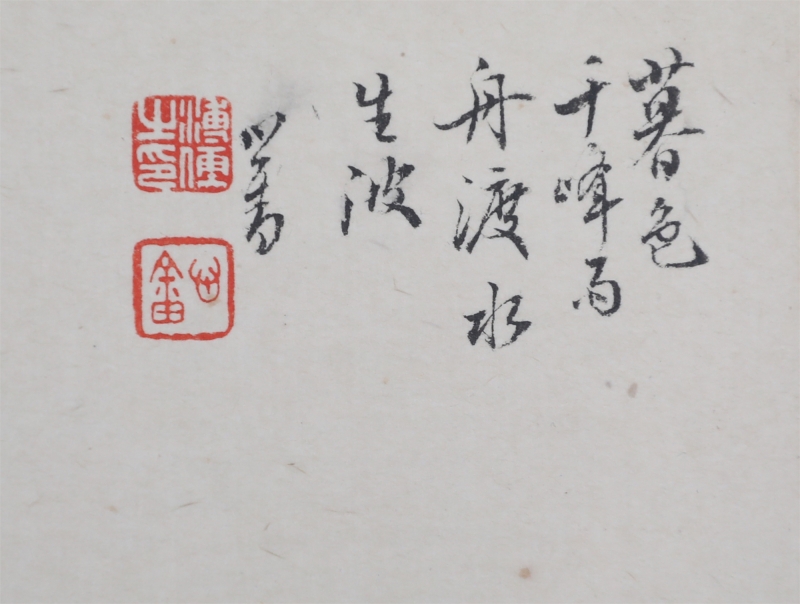 暮色
千峰雨
舟渡水
生波
心畬
溥儒
之印
心畬